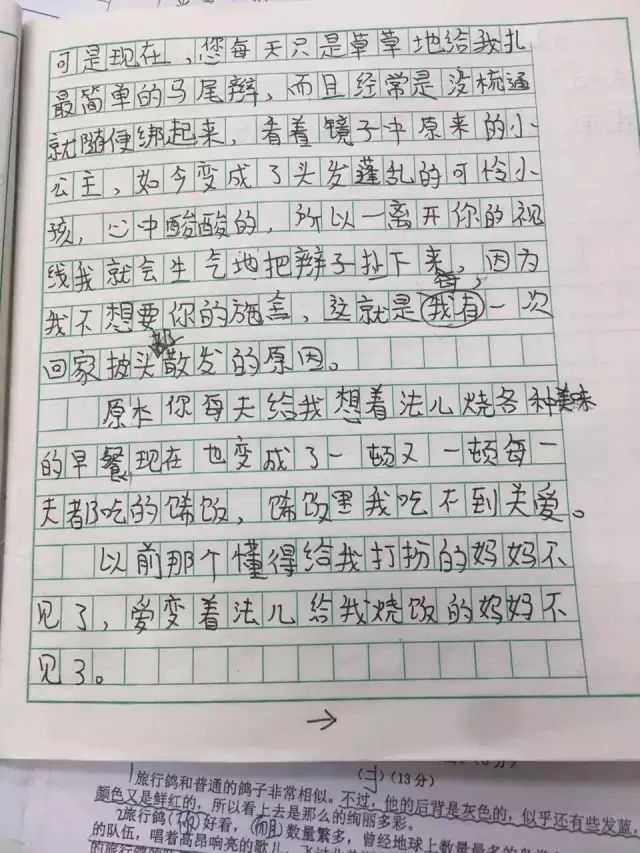 可是现在，您每天只是草草地给我扎
最简单的马尾辫，而且经常是没梳通
就随便绑起来，看着镜子中原来的小
公主，如今变成了头发蓬乱的可怜小
孩，心中酸酸的，所以一离开你的视
线我就会生气地把辫子扯下来，因为
我不想要你的施舍，这就是我有一次
回家披头散发的原因。
原本你每天给我想着法儿烧各种美味
的早餐现在也变成了一顿又一顿每一
天都吃的馊饭，馊饭里我吃不到关爱。
以前那个懂得给我打扮的妈妈不
见了，爱变着法儿给我烧饭的妈妈不
见了。
→
(13分)
旅行鸽和普通的鸽子非常相似。不过，他的后背是灰色的，似乎还有些发蓝，
颜色又是鲜红的，所以看上去是那么的绚丽多彩。
2旅行鸽()好看，(而且)数量繁多，曾经地球上数量最多的
的队伍，唱着高昂响亮的歌儿，